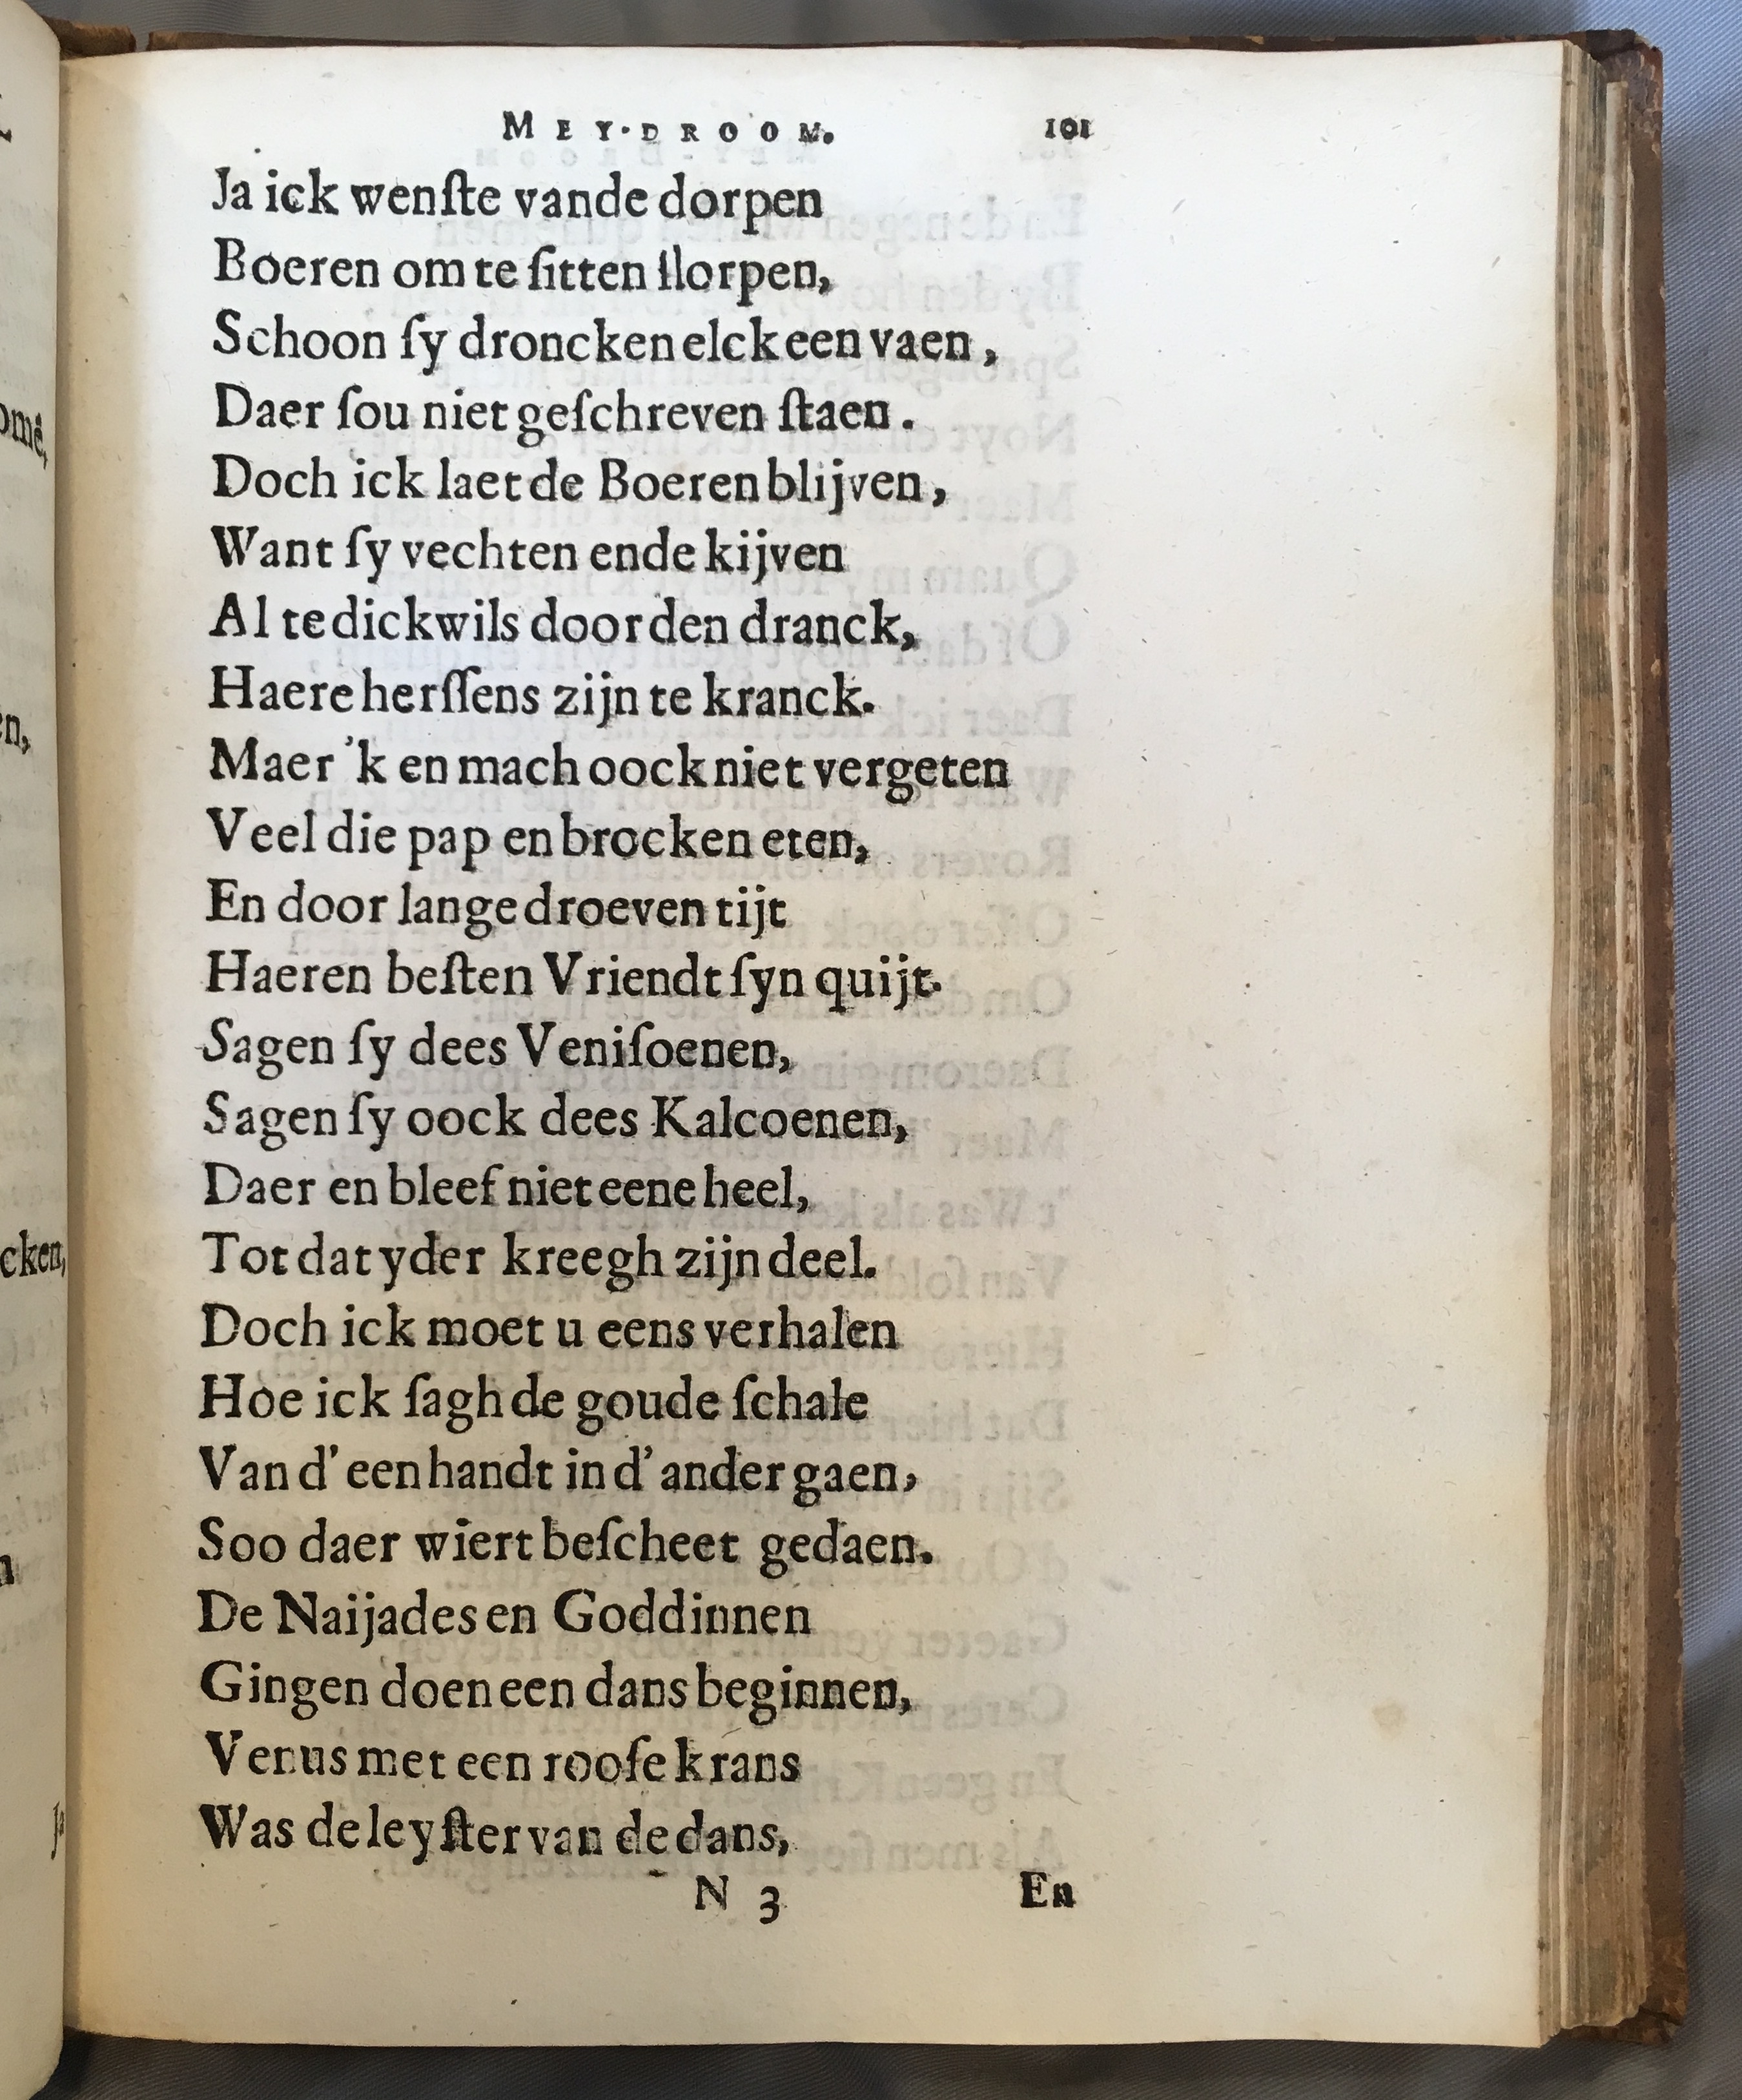 MEY-DROOM. 101
Ja ick wenſte vande dorpen
Boeren om te ſitten ſlorpen,
Schoon ſy droncken elck een vaen,
Daer ſou niet geſchreven ſtaen.
Doch ick laet de Boeren blijven,
Want ſy vechten ende kijven
Al te dickwils door den dranck,
Haere herſſens zijn te kranck.
Maer 'k en mach oock niet vergeten
Veel die pap en brocken eten,
En door lange droeven tijt
Haeren beſten Vriendt ſyn quijt.
Sagen ſy dees Veniſoenen,
Sagen ſy oock dees Kalcoenen,
Daer en bleef niet eene heel,
Tot dat yder kreegh zijn deel.
Doch ick moet u eens verhalen
Hoe ick ſagh de goude ſchale
Van d' een handt in d' ander gaen,
Soo daer wiert beſcheet gedaen.
De Naijades en Goddinnen
Gingen doen een dans beginnen,
Venus met een rooſe krans
Was de leyſter van de dans,
N 3 En